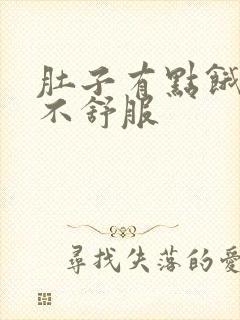 肚子有點餓
不舒服
尋找失落的愛